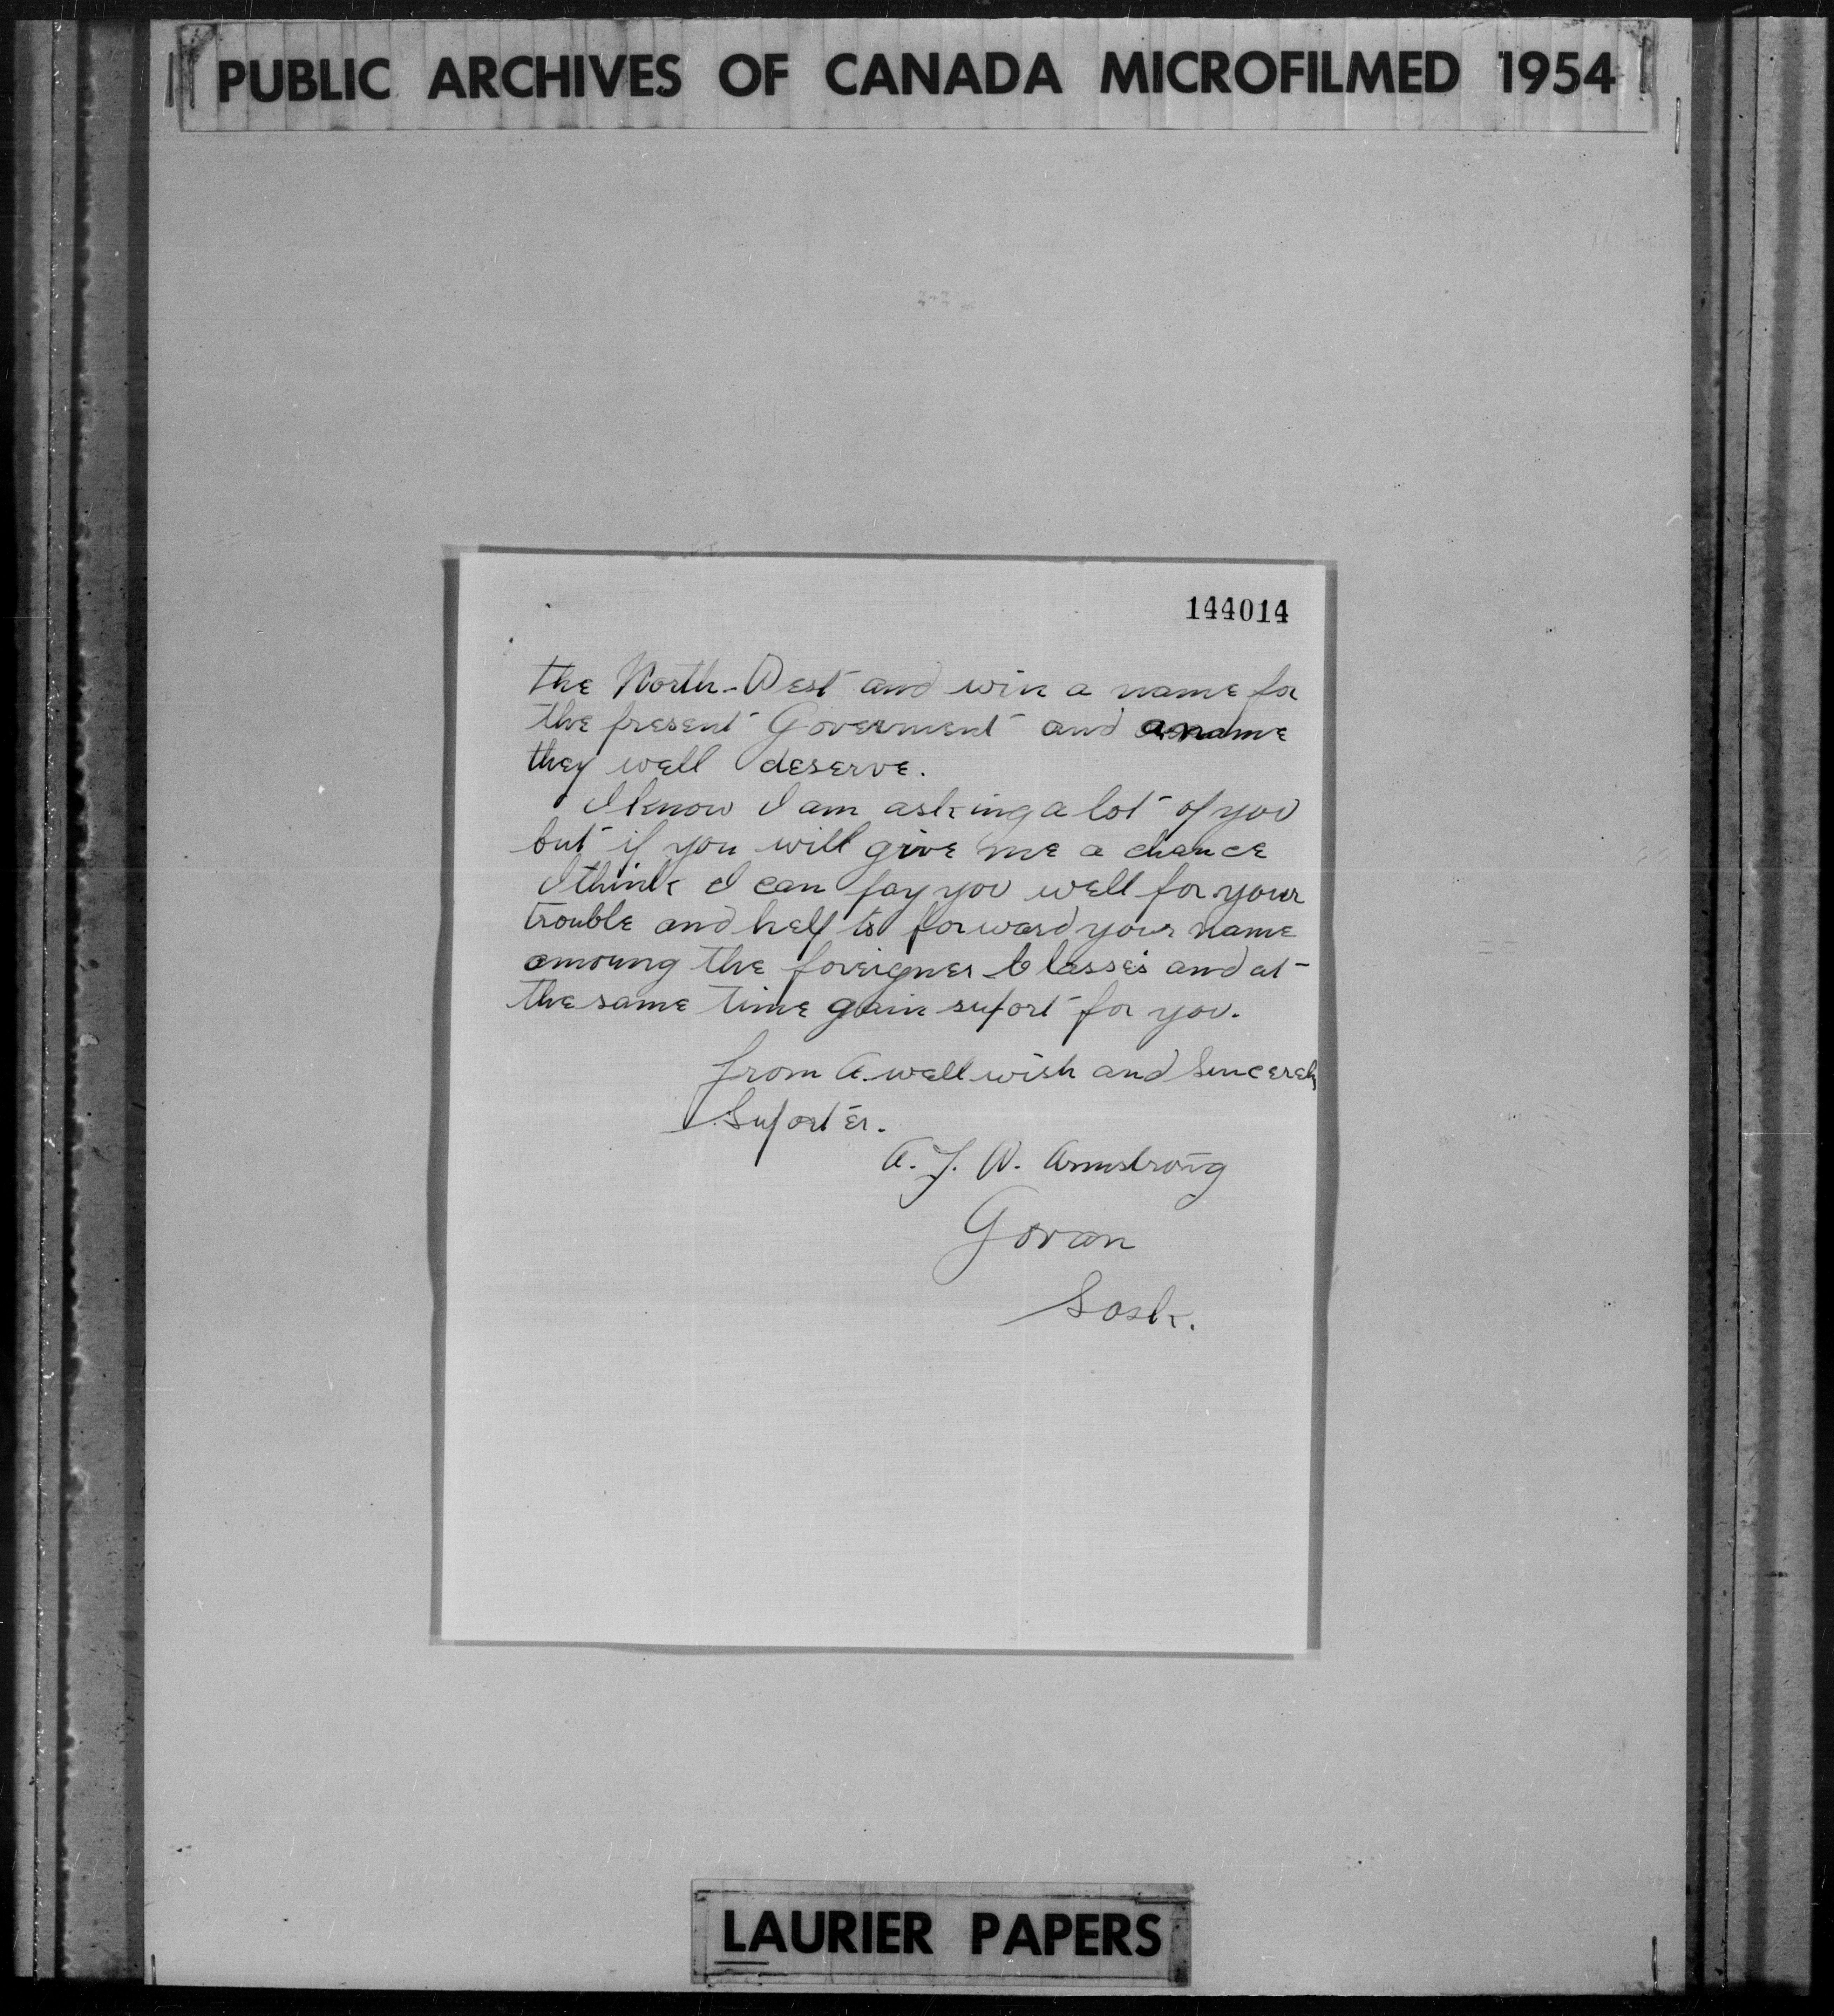 PUBLIC ARCHIVES OF CANADA MICROFILMED 1954
144014
the North-West and win a name for
the present Goverment and a name
they well deserve.
I know I am asking a lot of you
but if you will give me a chance
I think I can pay you well for your
trouble and help to forward your name
amoung the foreigner Classes and at
the same time gain suport for you.
from A. well wish and Sincerely
Suporter.
A. J. W. Armstrong
Govan
Sask.
LAURIER PAPERS